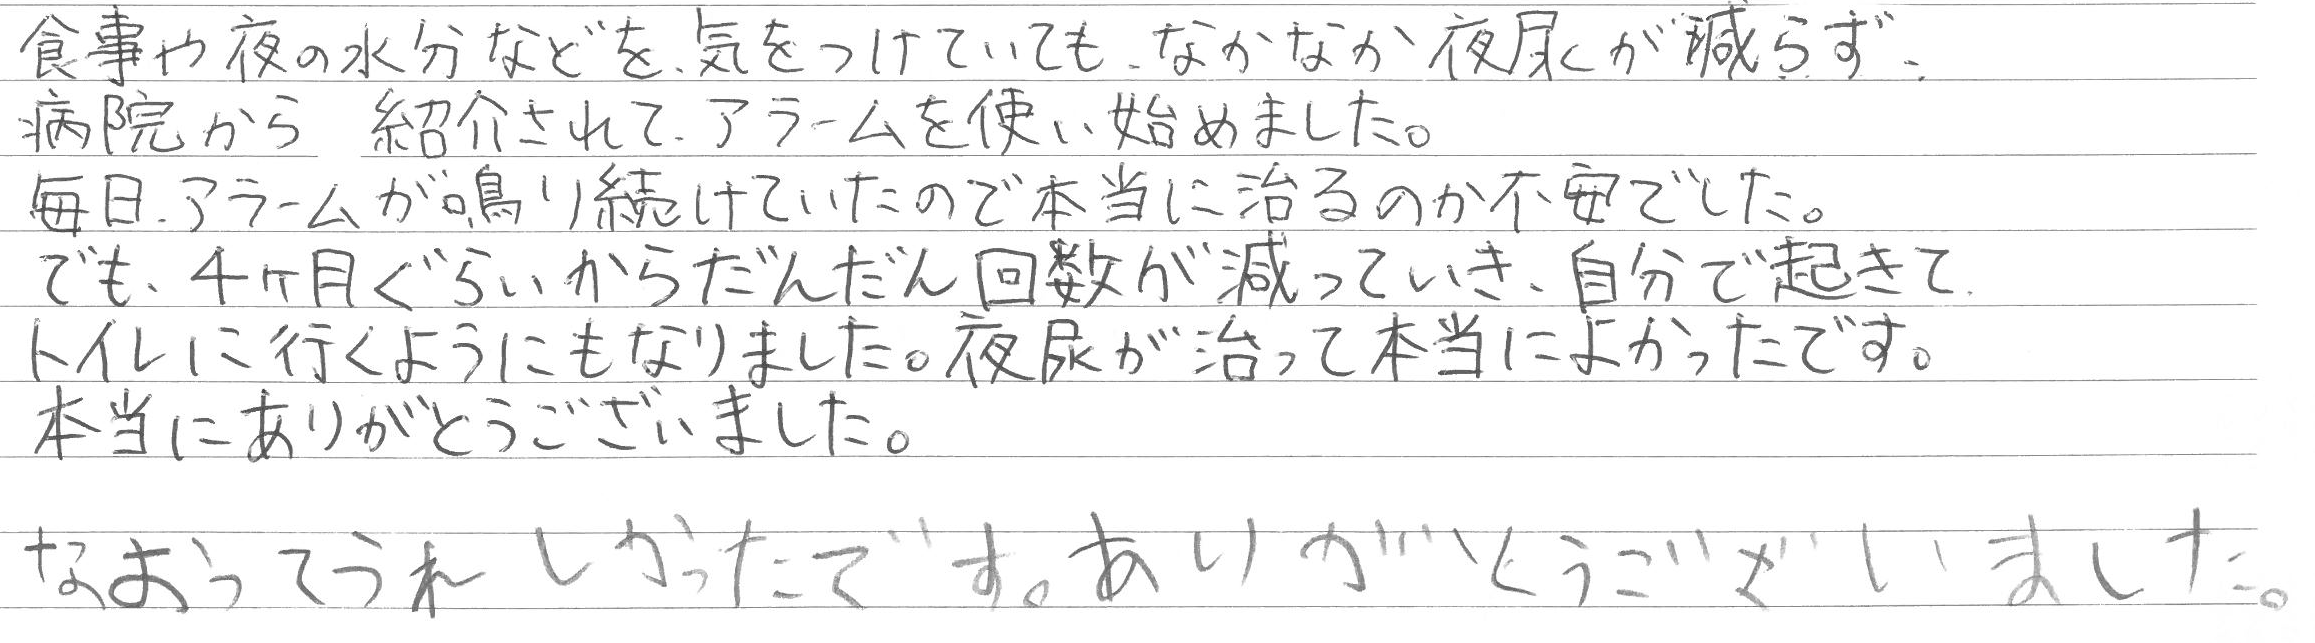 食事や夜の水分などを、気をつけていても、なかなか夜尿が減らず、
病院から 紹介されて、アラームを使い始めました。
毎日、アラームが鳴り続けていたので本当に治るのか不安でした。
でも、4ヶ月ぐらいからだんだん回数が減っていき、自分で起きて
トイレに行くようにもなりました。夜尿が治って本当によかったです。
本当にありがとうございました。
なおってうれしかったです。ありがとうございました。